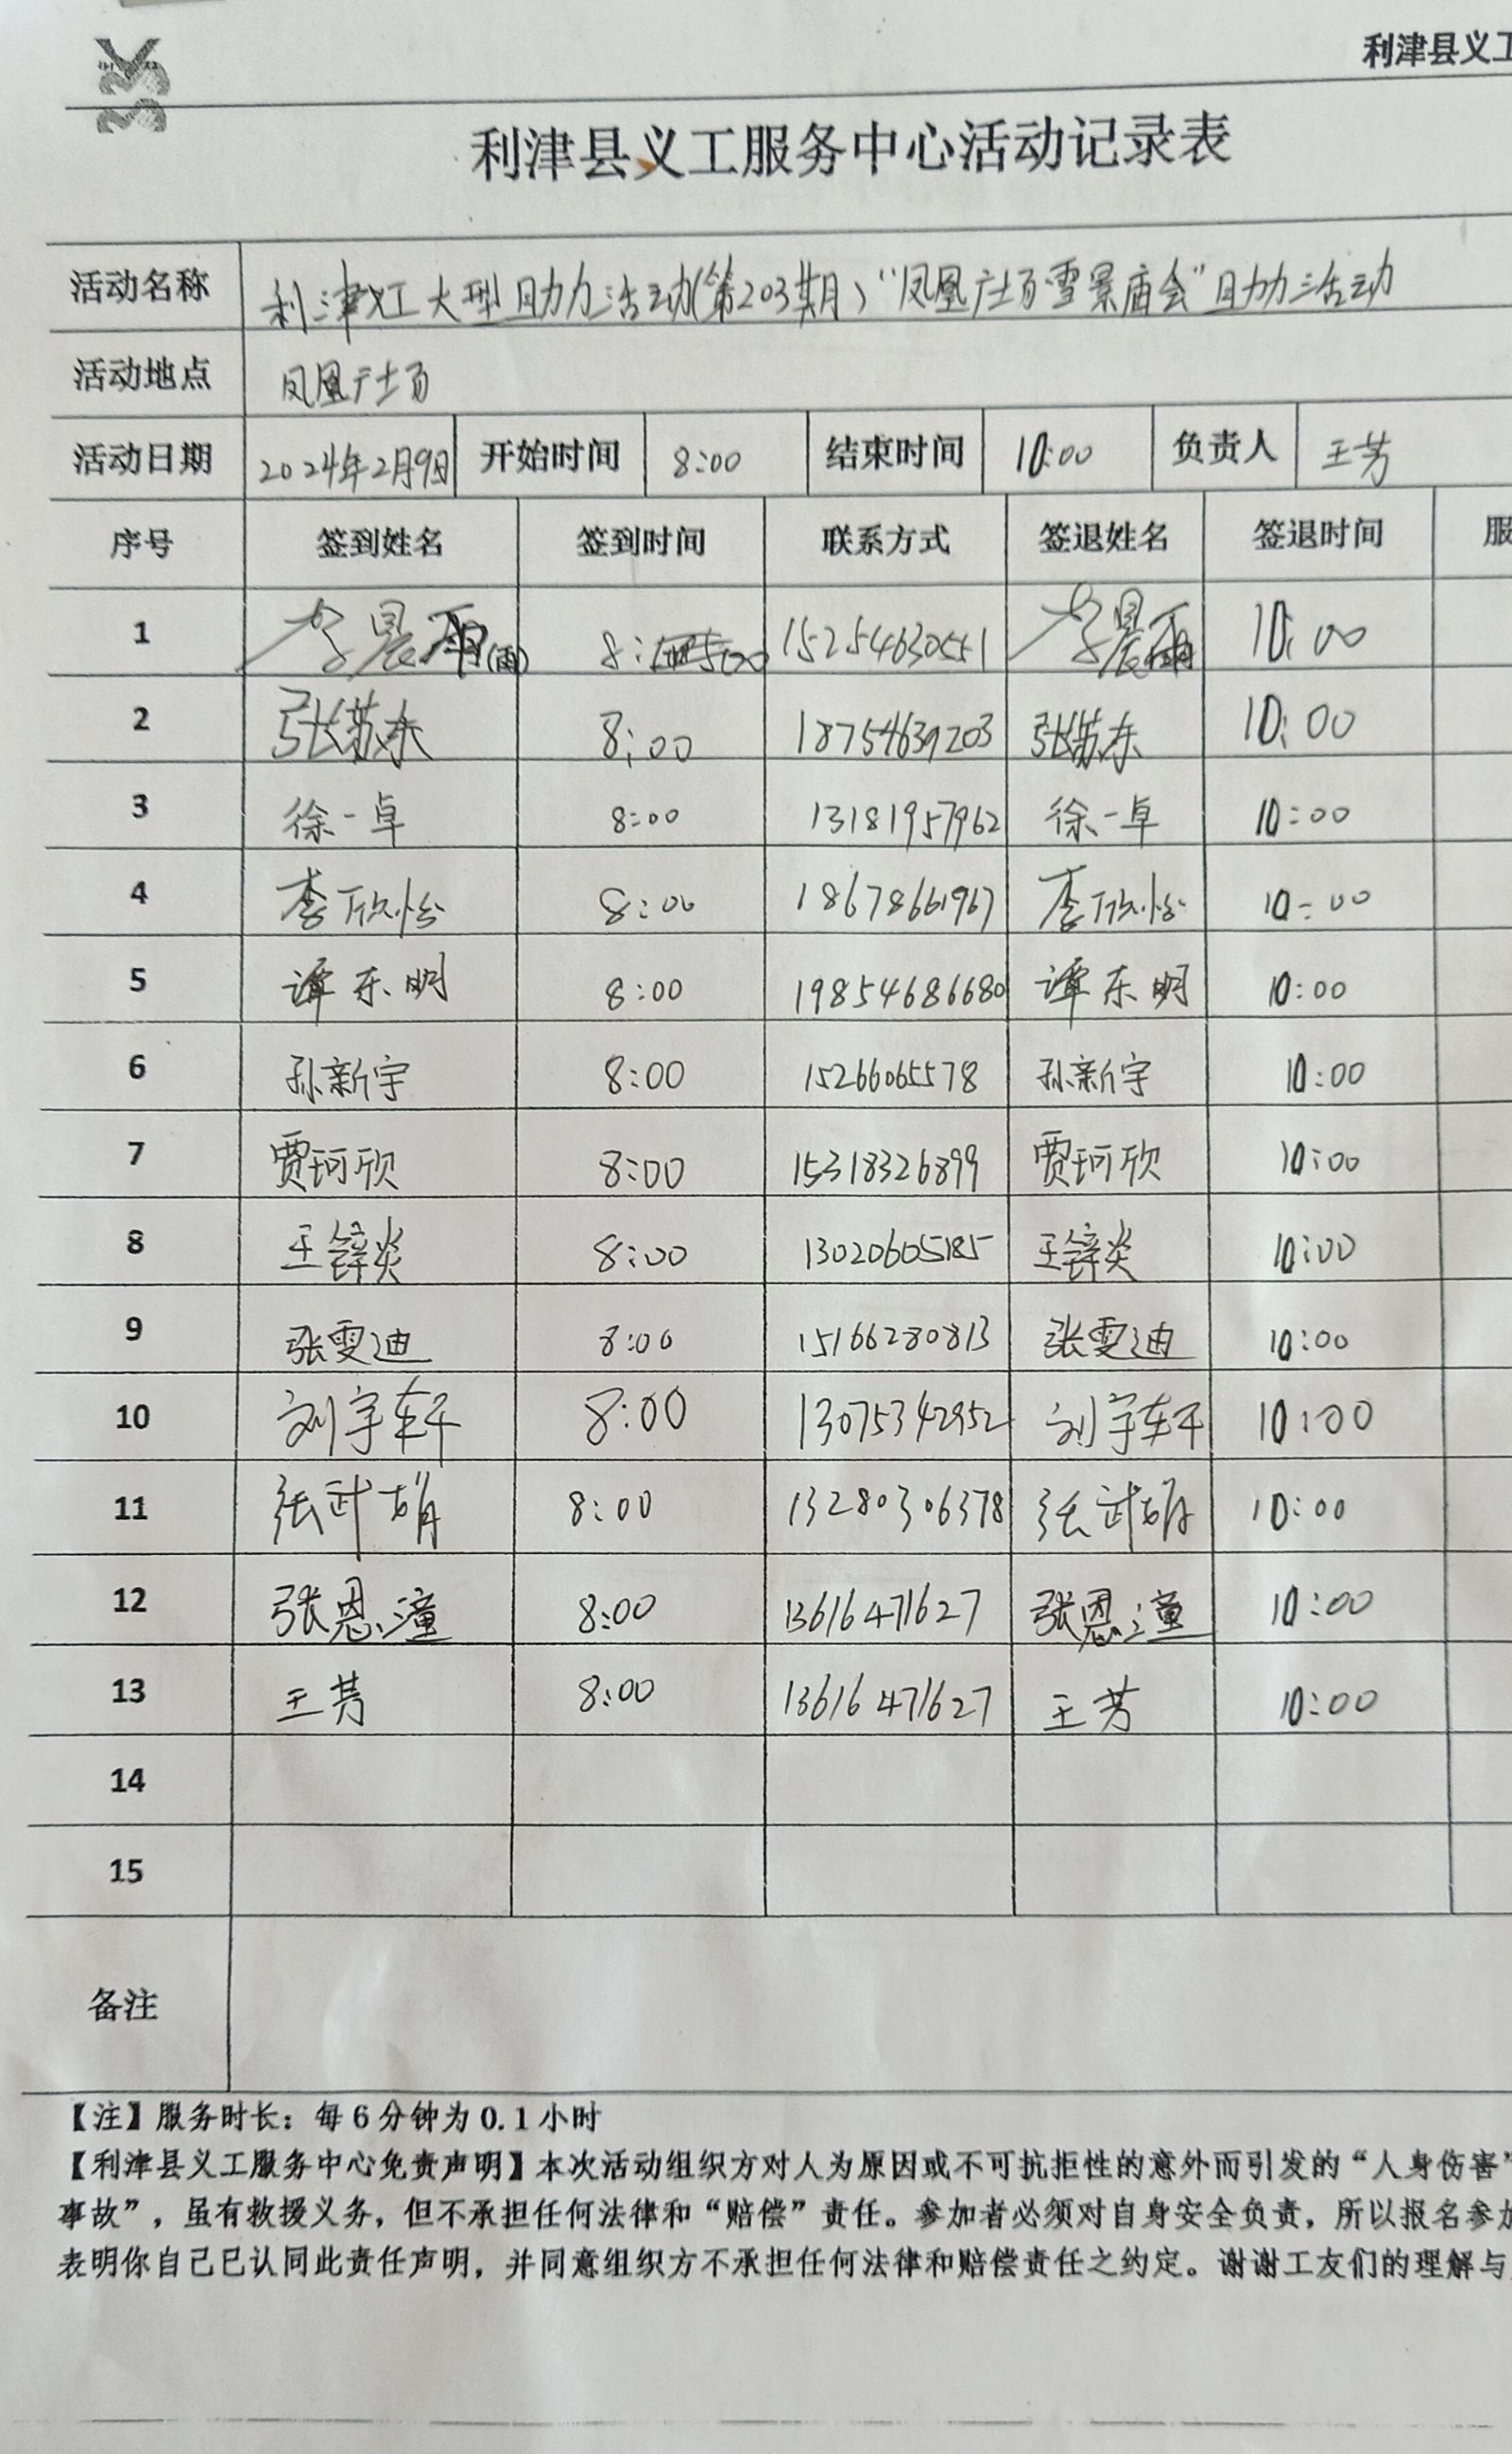 利津县义工
利津县义工服务中心活动记录表
活动名称 利津义工大型助力活动(第203期)“凤凰广场雪景庙会”助力活动
活动地点 凤凰广场
活动日期 2024年2月9日 开始时间 8:00 结束时间 10:00 负责人 王芳
序号 签到姓名 签到时间 联系方式 签退姓名 签退时间 服
1 李晨雨(雨) 8: 李晨雨 10:00
2 张苏东 8:00 18754639203 张苏东 10:00
3 徐一卓 8:00 13181957962 徐一卓 10:00
4 李欣怡 8:00 18678661967 李欣怡 10:00
5 谭东明 8:00 19854686680 谭东明 10:00
6 孙新宇 8:00 15266065578 孙新宇 10:00
7 贾珂欣 8:00 15318326899 贾珂欣 10:00
8 王锌炎 8:00 13020605185 王锌炎 10:00
9 张雯迪 8:00 15166280813 张雯迪 10:00
10 刘宇轩 8:00 13075342952 刘宇轩 10:00
11 张武 8:00 13280306378 张武 10:00
12 张恩潼 8:00 13616471627 张恩潼 10:00
13 王芳 8:00 13616471627 王芳 10:00
14
15
备注
【注】服务时长：每6分钟为0.1小时
【利津县义工服务中心免责声明】本次活动组织方对人为原因或不可抗拒性的意外而引发的“人身伤害”
事故”，虽有救援义务，但不承担任何法律和“赔偿”责任。参加者必须对自身安全负责，所以报名参加
表明你自己已认同此责任声明，并同意组织方不承担任何法律和赔偿责任之约定。谢谢工友们的理解与